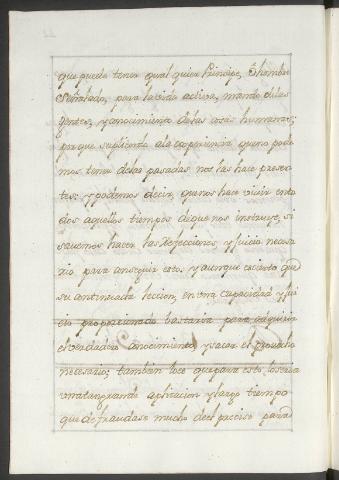 que pueda tener qual quier Principe, ó hombre
señalado, para la vida activa, mando de las
gentes, y conocimiento de las cosas humanas;
por que supliendo ala experiencia que no pode
mos tener delas pasadas nos las hace presen
tes: y podemos decir, que nos hace vivir en to
dos aquellos tiempos de que nos instruye, si
savemos hacer las reflecciones, y juicio necesa
rio para conseguir esto, y aunque es cierto que
su continuada leccion, en una capacidad y jui
cio proporcionado bastaria para adquirir
el verdadero conocimiento, y sacar el provecho
necesario; tambien lo es que para esto, lo seria
una tan grande aplicacion y largo tiempo
que defraudase mucho de el preciso para